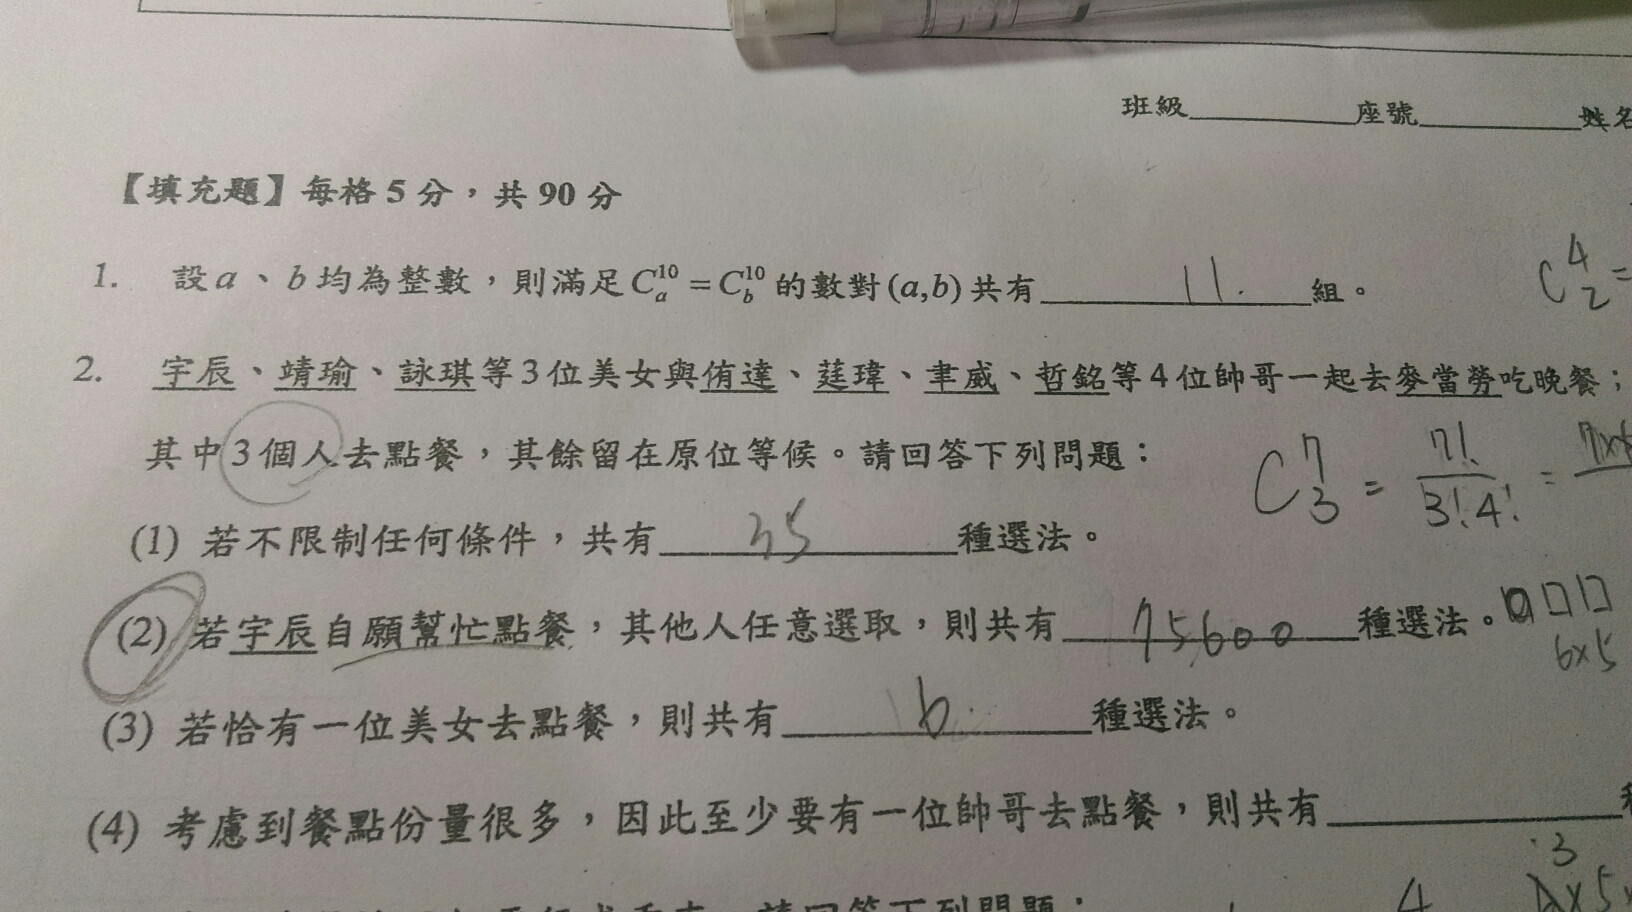 班級 座號 姓名
【填充題】每格5分，共90分
1. 設a、b均為整數，則滿足C_a^10 = C_b^10的數對(a,b)共有 11. 組。
C_2^4 =
2. 宇辰、靖瑜、詠琪等3位美女與侑達、莛瑋、聿威、哲銘等4位帥哥一起去麥當勞吃晚餐；
其中3個人去點餐，其餘留在原位等候。請回答下列問題：
C_3^7 = 7!/3!4! =
(1) 若不限制任何條件，共有 35 種選法。
(2) 若宇辰自願幫忙點餐，其他人任意選取，則共有 75600 種選法。
6x5
(3) 若恰有一位美女去點餐，則共有 種選法。
(4) 考慮到餐點份量很多，因此至少要有一位帥哥去點餐，則共有
3
4
請回答下列問題：